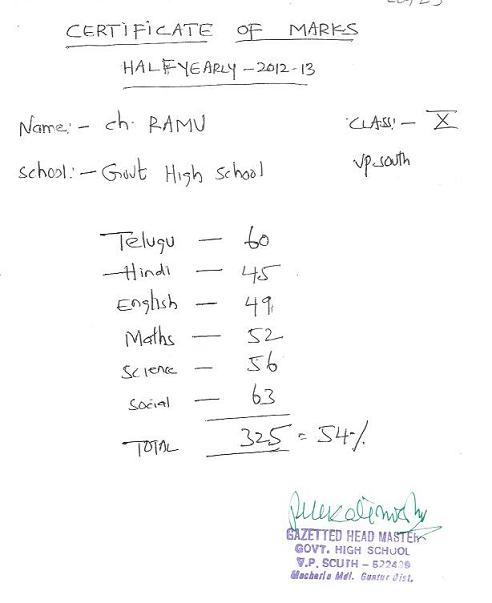 CERTIFICATE OF MARKS
HALFYEARLY - 2012-13
Name:- ch. RAMU CLASS:- X
School:- Govt High School V.P. South
Telugu — 60
Hindi — 45
English — 49
Maths — 52
Science — 56
Social — 63
TOTAL 325 = 54%
GAZETTED HEAD MASTER
GOVT. HIGH SCHOOL
V.P. SOUTH - 522429
Macherla Mdl. Guntur Dist.